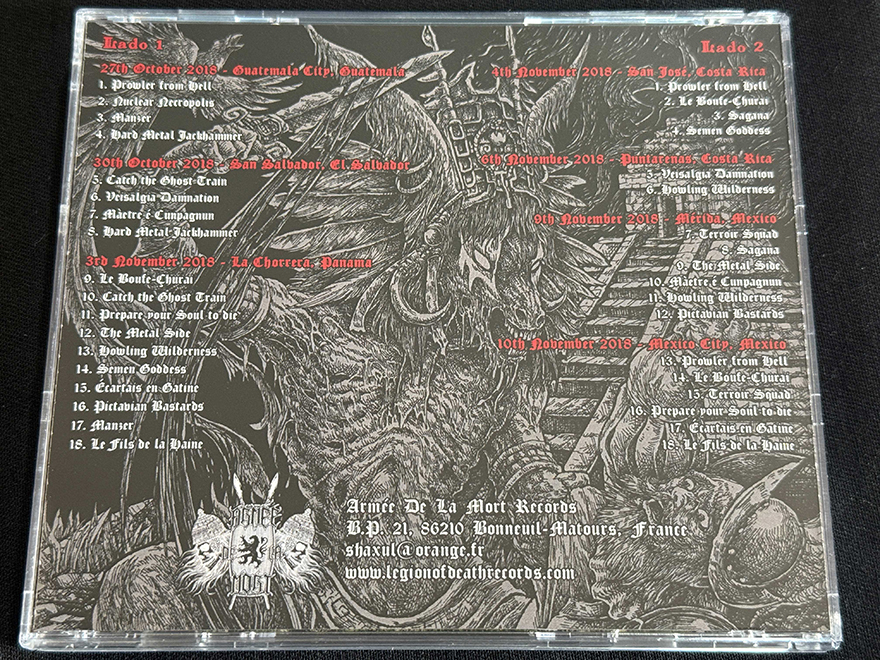 Lado 1
27th October 2018 - Guatemala City, Guatemala
1. Prowler from Hell
2. Nuclear Necropolis
3. Manzer
4. Hard Metal Jackhammer
30th October 2018 - San Salvador, El Salvador
5. Catch the Ghost Train
6. Veisalgia Damnation
7. Màetre é Cunpagnun
8. Hard Metal Jackhammer
3rd November 2018 - La Chorrera, Panama
9. Le Boufe-Churai
10. Catch the Ghost Train
11. Prepare your Soul to die
12. The Metal Side
13. Howling Wilderness
14. Semen Goddess
15. Ecartais en Gatine
16. Pictavian Bastards
17. Manzer
18. Le Fils de la Haine
Lado 2
4th November 2018 - San José, Costa Rica
1. Prowler from Hell
2. Le Boufe-Churai
3. Sagana
4. Semen Goddess
6th November 2018 - Puntarenas, Costa Rica
5. Veisalgia Damnation
6. Howling Wilderness
9th November 2018 - Mérida, Mexico
7. Terroir Squad
8. Sagana
9. The Metal Side
10. Màetre é Cunpagnun
11. Howling Wilderness
12. Pictavian Bastards
10th November 2018 - Mexico City, Mexico
13. Prowler from Hell
14. Le Boufe-Churai
15. Terroir Squad
16. Prepare your Soul to die
17. Ecartais en Gatine
18. Le Fils de la Haine
ARMÉE
DE LA
MORT
Armée De La Mort Records
B.P. 21, 86210 Bonneuil-Matours, France
shaxul@orange.fr
www.legionofdeathrecords.com